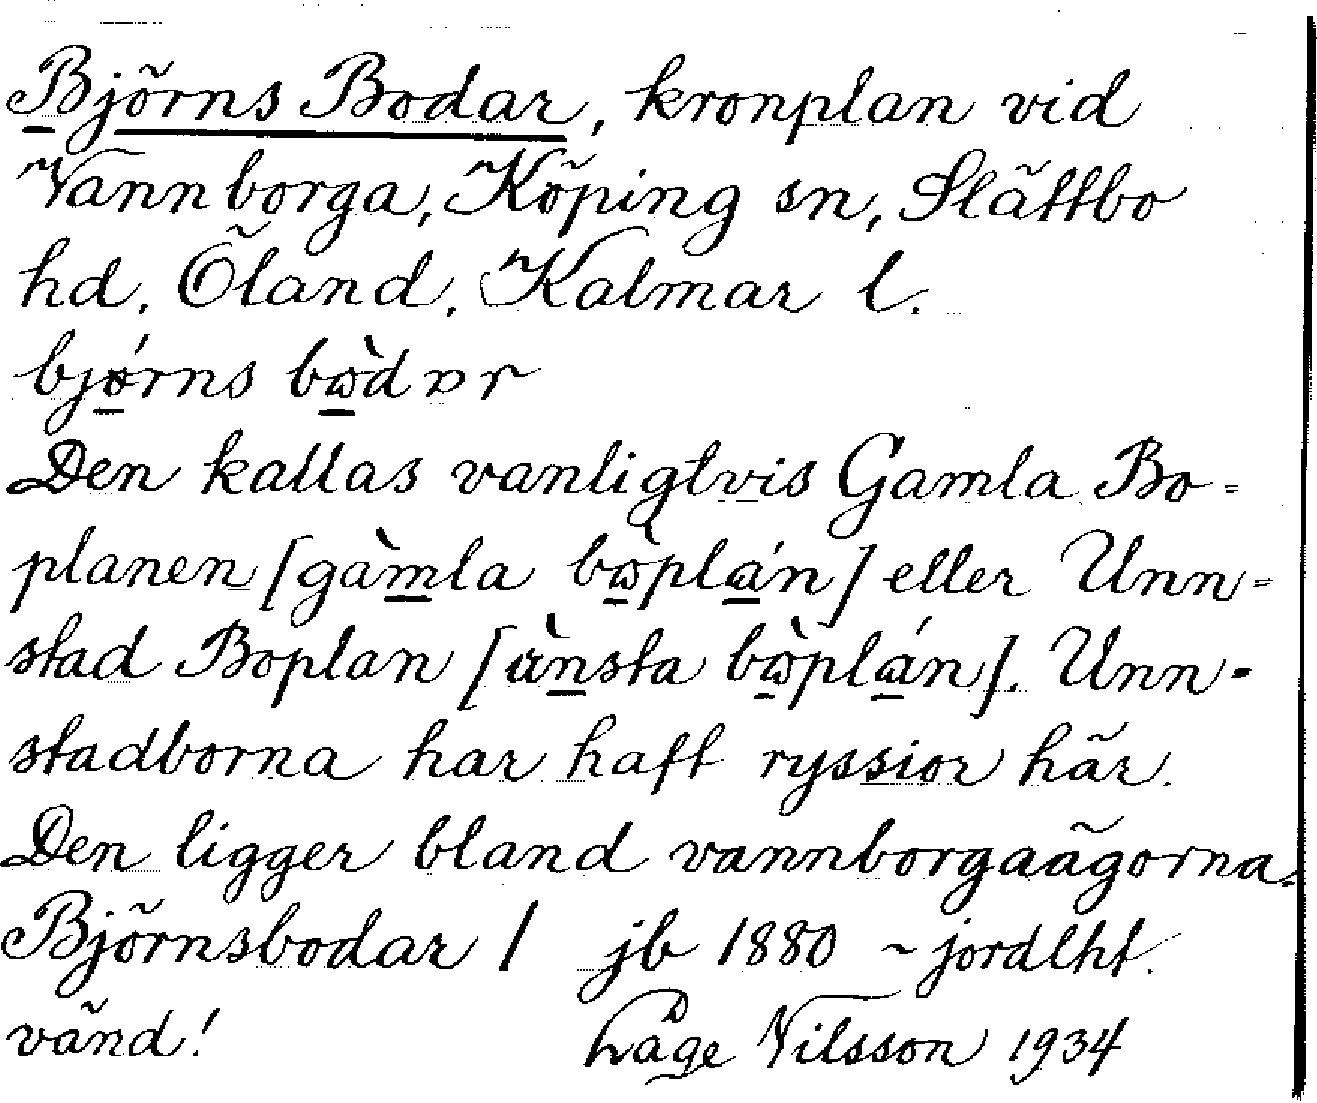 Björns Bodar, kronplan vid
Vannborga, Köping sn, Slättbo
hd, Öland, Kalmar l.
bjǿrns bὼdɒr
Den kallas vanligtvis Gamla Bo-
planen [gàmla bὼplán] eller Unn-
stad Boplan [ùnsta bὼplán]. Unn-
stadborna har haft ryssior här.
Den ligger bland vannborgaägorna.
Björnsbodar / jb 1880 ~ jordlht.
vänd! Låge Nilsson 1934